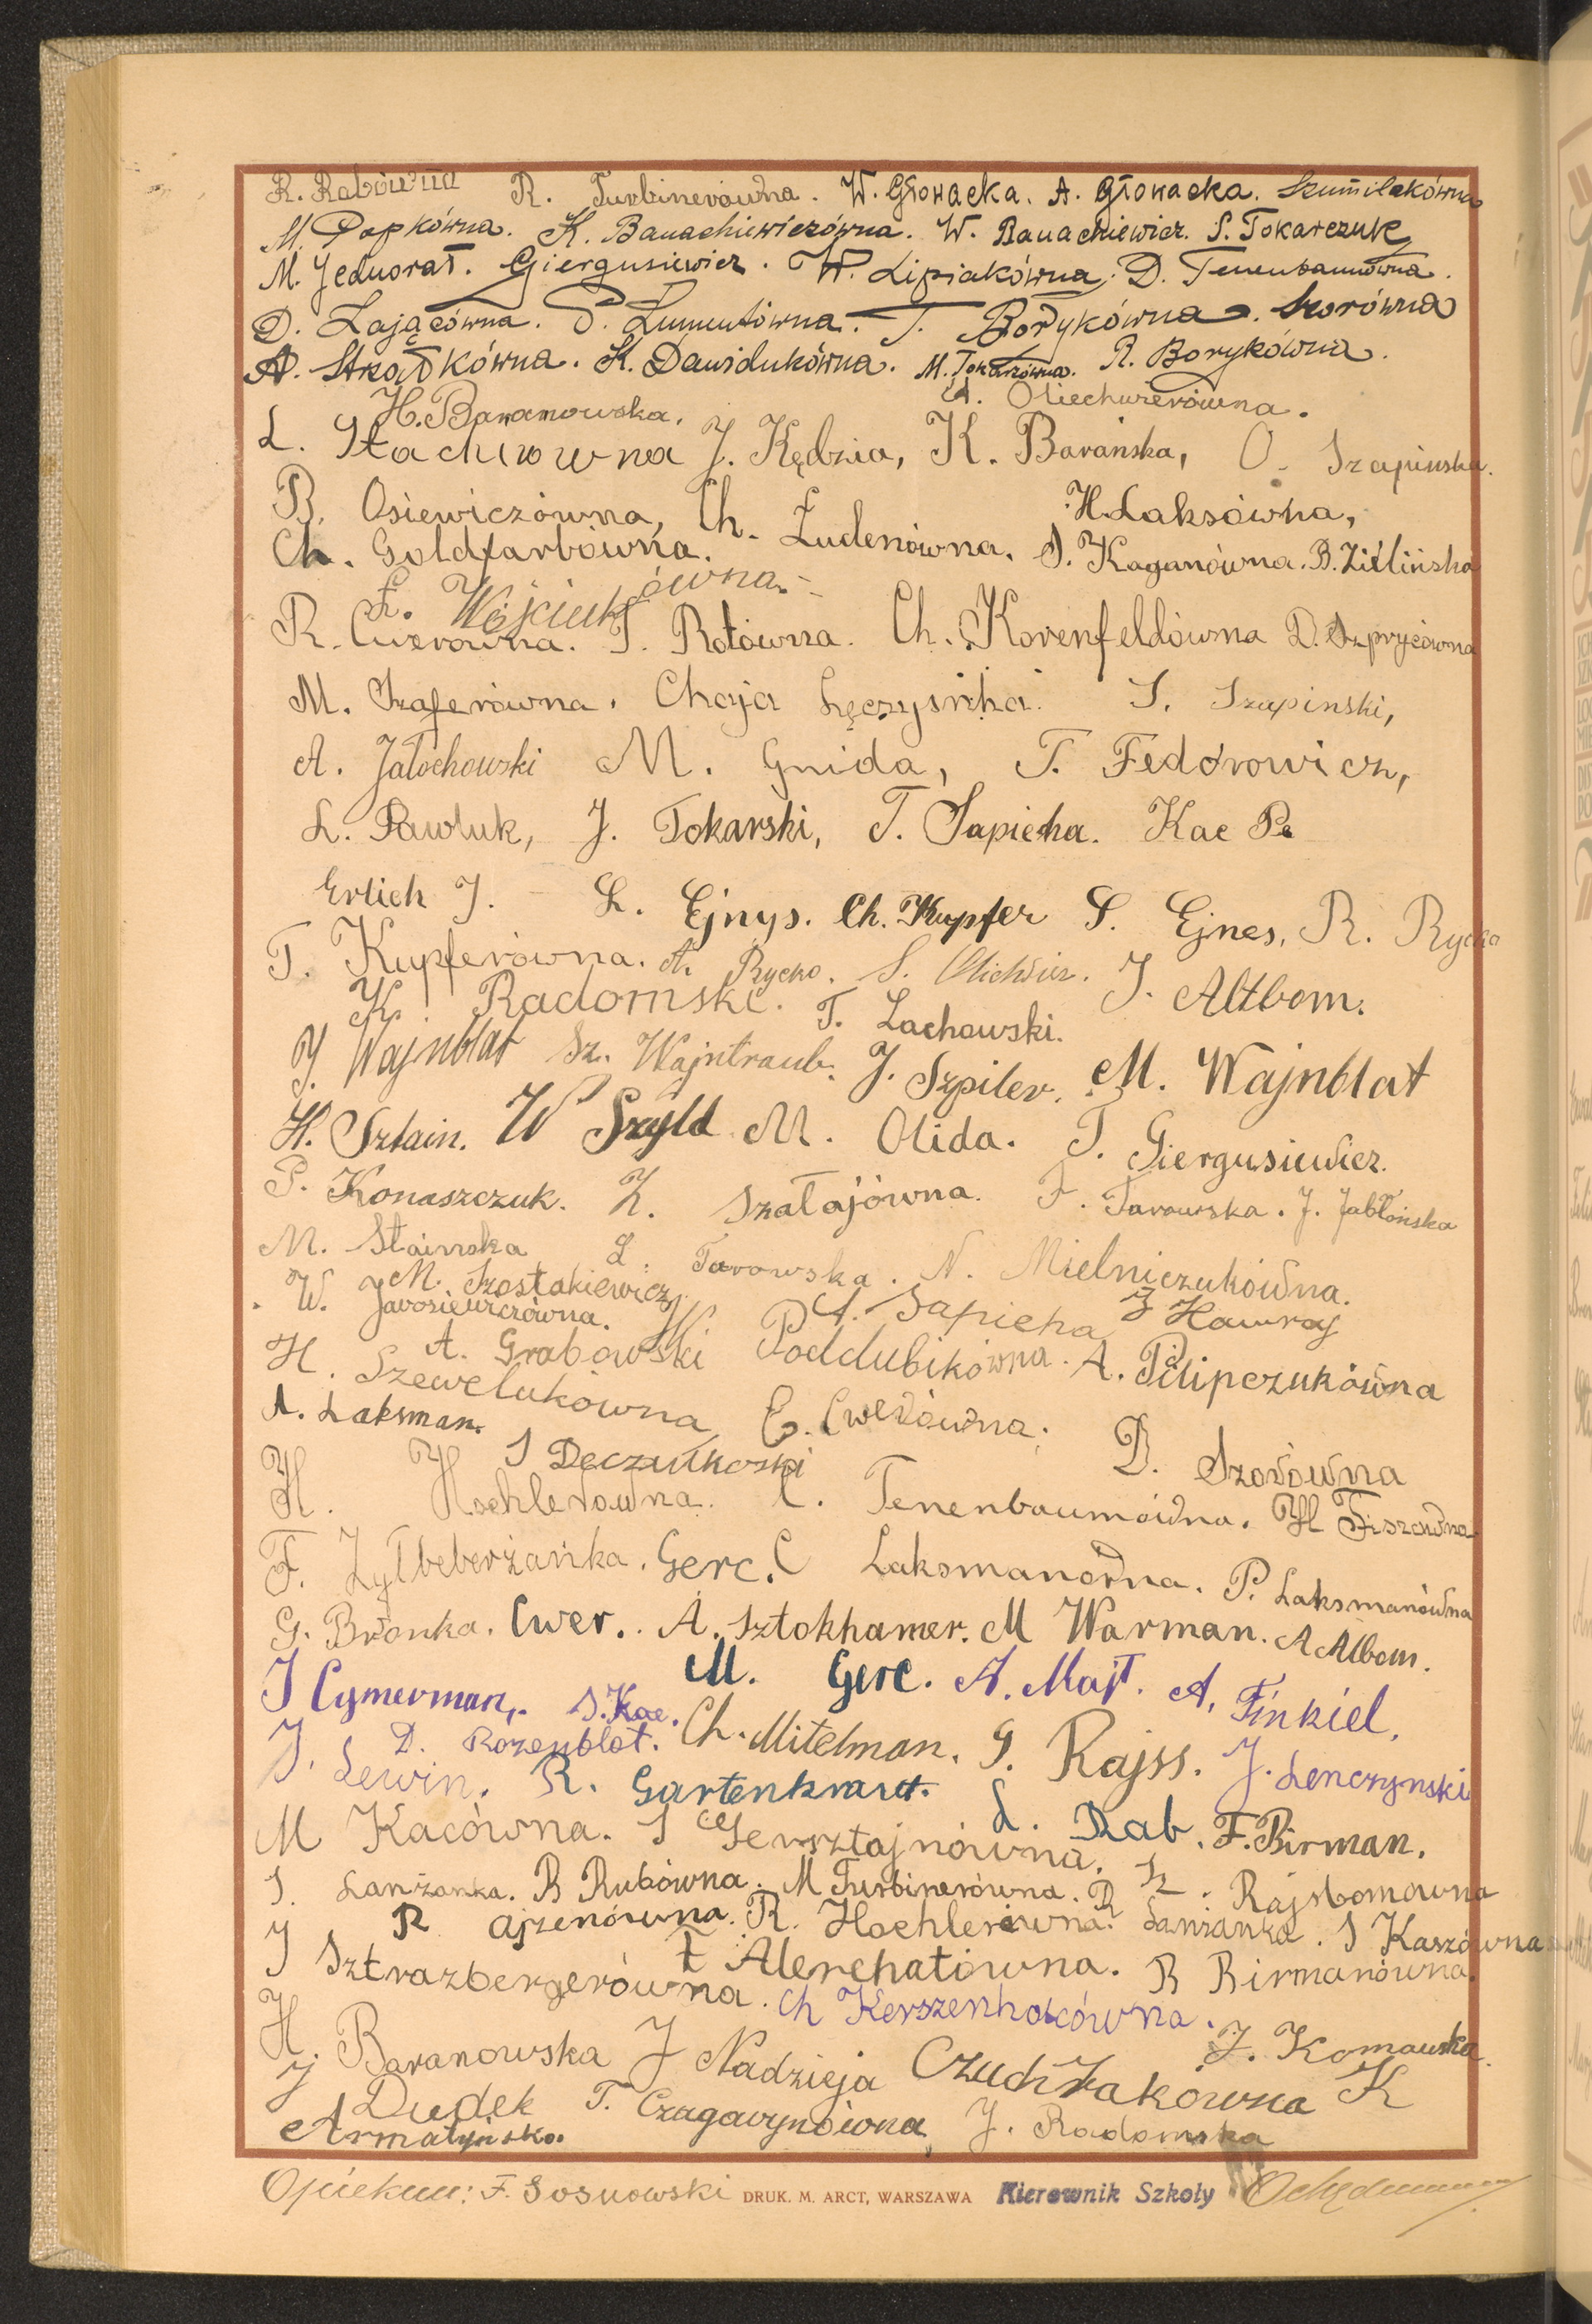 R. Rabówna R. Turbinerówna. W. Głowacka. A. Głowacka. Szumilakówna
M. Popkówna. K. Banachiewiczówna. W. Banachiewicz. S. Tokarczuk
M. Jednorał. Giergusiewicz. W. Lipiakówna. D. Tenenbaumówna.
D. Zającówna. T. Borykówna. Szorówna
A. Strzałkówna. K. Dawidukówna. M. Tokarzówna. R. Borykówna.
H. Baranowska. Oliechwierówna.
L. Stachiówna J. Kędzia, K. Barańska, O. Szapinska.
B. Osiewiczówna, Ch. Żudenówna. H. Laksówna,
Ch. Goldfarbówna. S. Kaganówna. B. Zielińska
L. Wójciukówna.
R. Cwerówna. T. Rotówna. Ch. Korenfeldówna D. Szprycówna
M. Szaferówna. Chaja Łęczyśnka. S. Szapinski,
A. Jałochowski M. Gnida, T. Fedorowicz,
L. Pawluk, J. Tokarski, T. Sapieha. Kac P.
Erlich J. L. Ejnys. Ch. Kupfer S. Ejnes, R. Rycko
T. Kupferówna. A. Rycko. S. Olichwier. J. Altbom.
K. Radomski. T. Lachowski.
J. Wajnblat Sz. Wajntraub. J. Szpiler. M. Wajnblat
H. Sztain. W Szyld M. Olida. T. Giergusiewicz.
P. Konaszczuk. Z. Szałajówna. F. Tarowska. J. Jabłońska
M. Stainska L. Tarowska. N. Mielniczukówna.
M. Szostakiewicz A. Sapieha J Hawraj
W. Jarosiewiczówna. W Poddubikówna. A. Pilipczukówna
A. Grabowski
H. Szewelukówna C. Cwerówna.
A. Laksman. D. Szorówna
S Deczulkoski
H. Hochlerówna. C. Tenenbaumówna. H Fiszówna
F. Zylbeberżanka. Gerc. C Laksmanówna. P. Laksmanówna
G. Bronka. Cwer.. A. Sztokhamer. M Warman. A Albom.
M. Gerc. A. Majt. A. Finkiel.
J Cymerman,. S. Kac. Ch. Mitelman. G. Rajss. J. Lenczynski
D. Rozenblat.
J. Lewin. R. Gartenkraut. L. Rab. F. Birman.
M Kacówna. S Gersztajnówna. Sz. Rajsbomowna
S. Lanżanka. B Rubówna. M Turbinerówna. R Lanżanka. S Kaszówna
R Ajzenówna. R. Hochlerówna.
J Sztrazbergerówna. Alerchatówna. B Birmanówna.
Ch Kerszenholcówna.
H. Baranowska J Nadzieja Czuchrakówna K J. Komawka.
J. Dudek T. Czagarynówna J. Radomska
Armatyńsko.
Opiekun: F. Sosnowski DRUK. M. ARCT, WARSZAWA Kierownik Szkoły